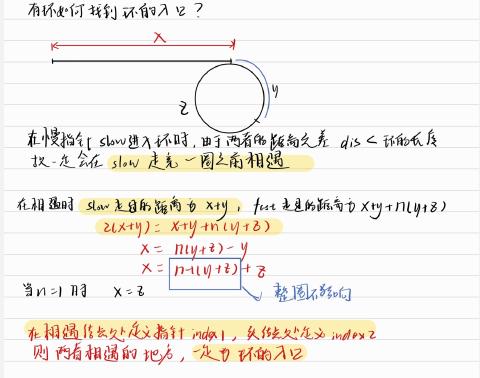 有环如何找到环的入口？
x
y
z
在慢指针slow进入环时，由于两者的距离之差 dis < 环的长度
故一定会在 slow 走完一圈之前相遇
在相遇时 slow走过的距离为 x+y，fast走过的距离为 x+y+n(y+z)
2(x+y) = x+y+n(y+z)
x = n(y+z)-y
x = n-1(y+z)+z
当n=1时 x=z
整圈不影响
在相遇结点处定义指针 index1，头结点处定义index2
则两者相遇的地方，一定为环的入口